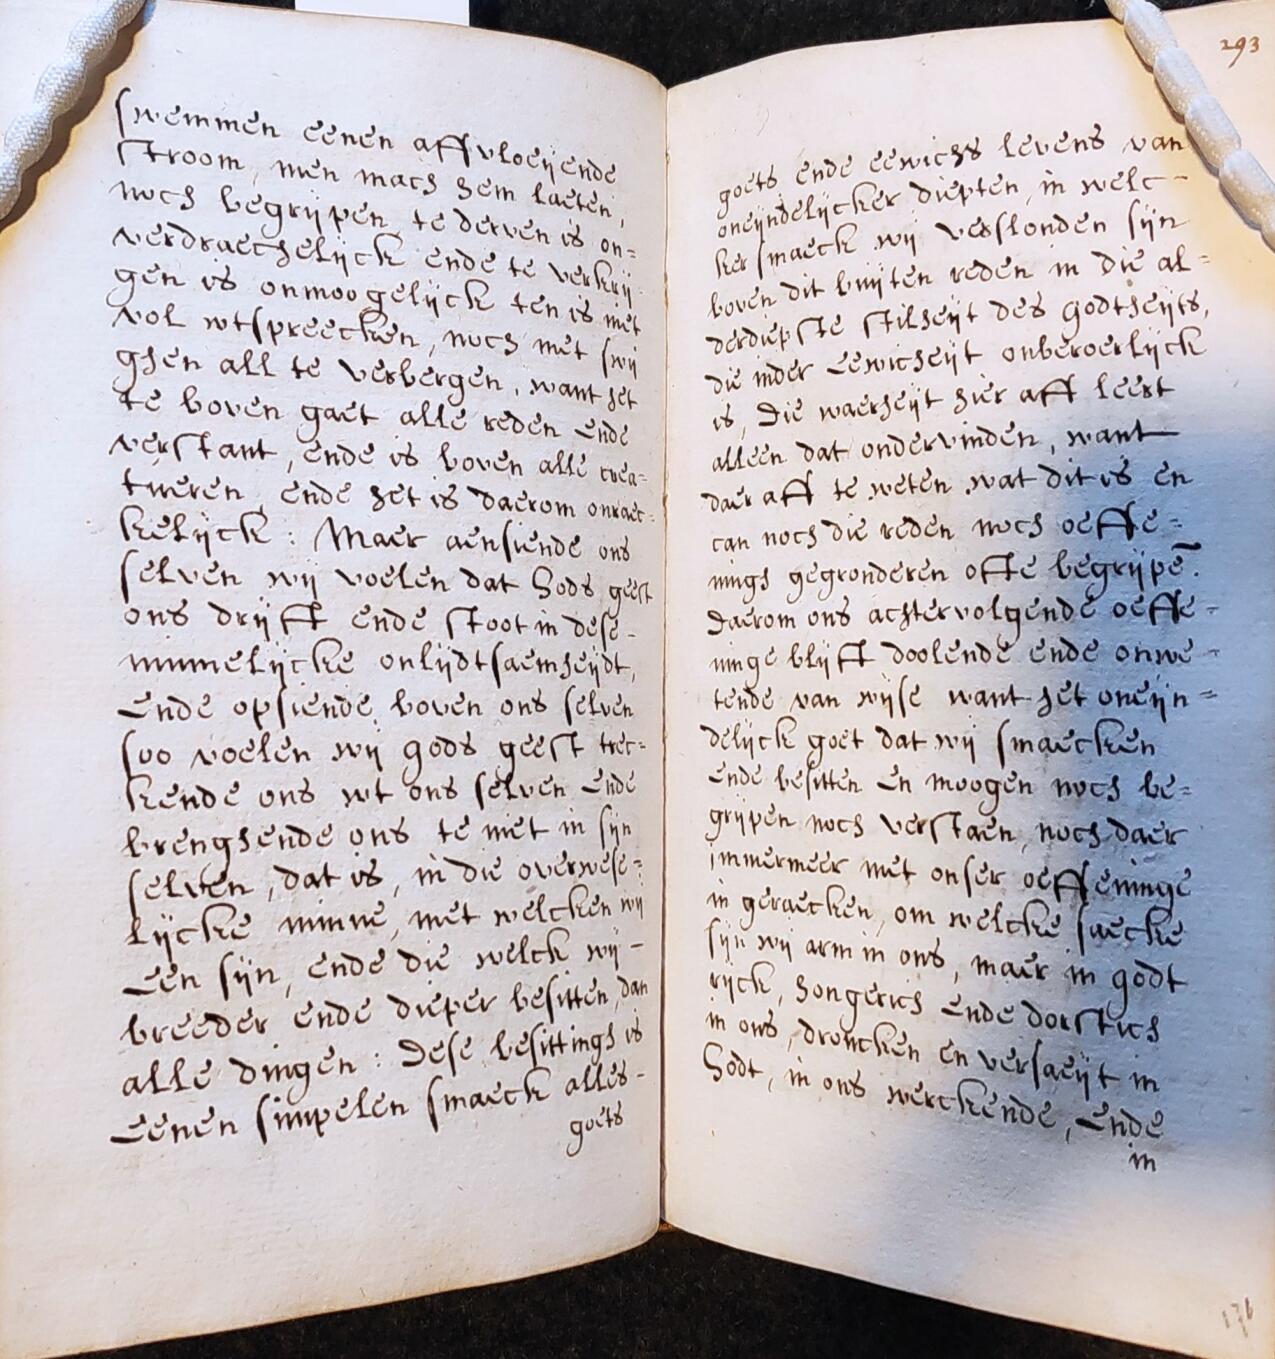 swemmen eenen affvloeijende
stroom, men mach hem laeten,
noch begrijpen, te derven is on=
verdraechelijck ende te verkrij-
gen is onmoogelijck ten is met
vol wtspreecken, noch met swij
ghen all te verbergen, want het
te boven gaet alle reden ende
verstant, ende is boven alle crea=
tueren, ende het is daerom onraec-
kelijck: Maer aensiende ons
selven wij voelen dat Gods geest
ons drijft ende stoot in dese-
minnelijcke onlijdtsaemheijdt,
Ende opsiende boven ons selven
soo voelen wij gods geest trec-
kende ons wt ons selven Ende
brenghende ons te niet in sijn
selven, dat is, in die overwese=
lijcke minne, met welcken wij
Een sijn, ende die welck wij-
breeder ende dieper besitten, dan
alle dingen: Dese besittingh is
Eenen simpelen smaeck alles-
goets
293
goets ende eewichs levens van
oneijndelijcker diepten, in welc-
ker smaeck wij verslonden sijn
boven dit buijten reden in die al=
derdiepste stilheijt des godtheijts,
die inder Eewicheijt onberoerlijck
is, Die waerheijt hier aff leert
alleen dat ondervinden, want
daer aff te weten wat dit is en
can noch die reden noch oeffe=
nings gegronderen ofte begrijpē.
Daerom ons achtervolgende oeffe=
ninge blijft doolende ende onwe-
tende van wijse want het oneijn=
delijck goet dat wij smaecken
Ende besitten En moogen noch be=
grijpen noch verstaen, noch daer
immermeer met onser oeffeninge
in geraecken, om welcke saecke
sijn wij arm in ons, maer in godt
rijck, hongerich Ende dorstich
in ons, droncken en versaeijt in
Godt, in ons werckende, Ende
in
176